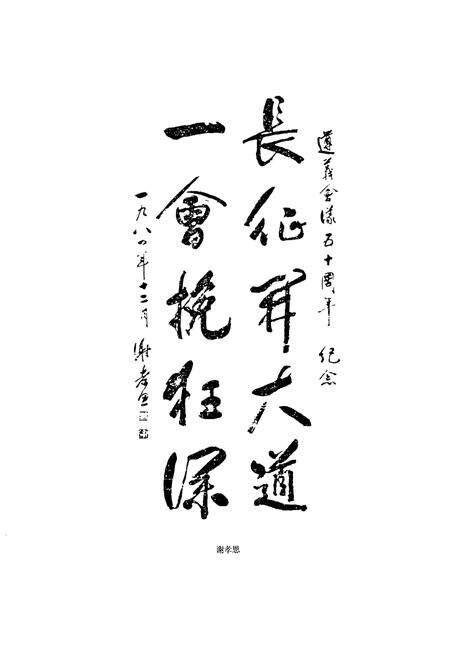 遵義会議五十周年 纪念
長征開大道
一會挽狂瀾
一九八四年十二月 谢孝思
谢孝思